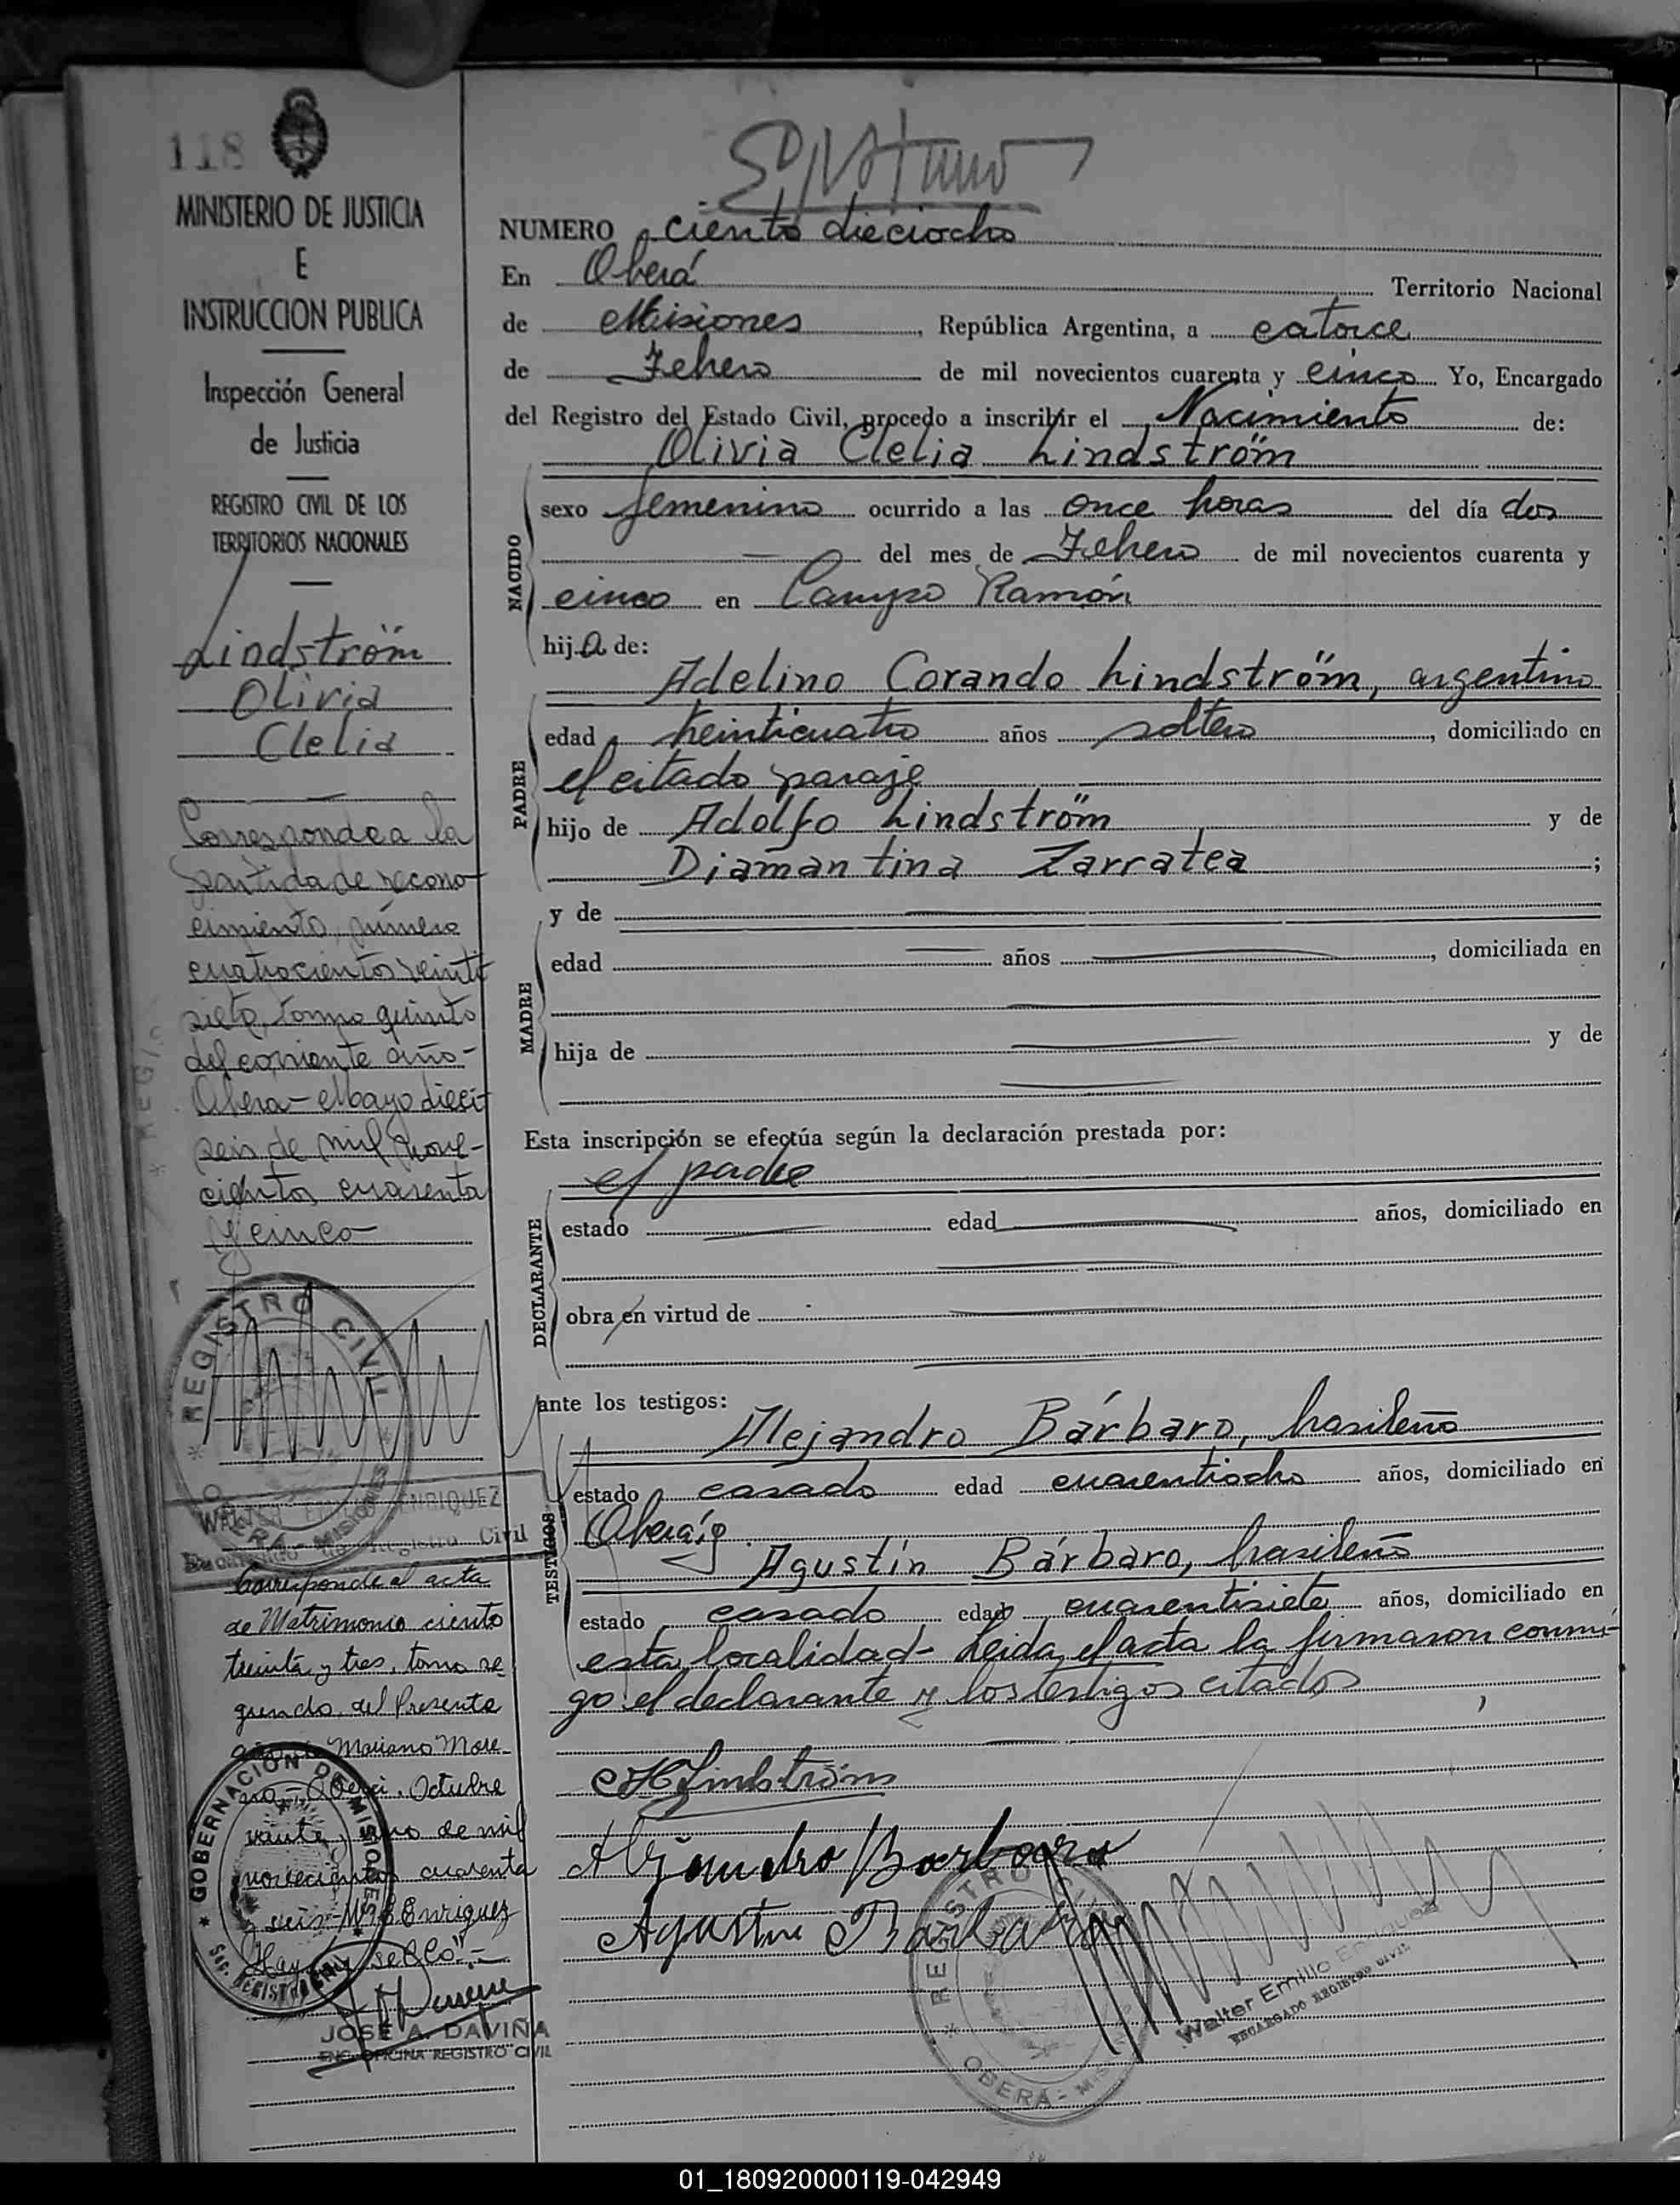 118
MINISTERIO DE JUSTICIA
E
INSTRUCCION PUBLICA
Inspección General
de Justicia
REGISTRO CIVIL DE LOS
TERRITORIOS NACIONALES
Lindström
Olivia
Clelia
Corresponde a la
partida de recono-
cimiento, número
cuatrocientos veinti
siete, tomo quinto
del corriente año-
Oberá- Mayo dieci-
seis de mil nove-
cientos cuarenta
y cinco-
REGISTRO CIVIL
OBERA - MISIONES
WALTER EMILIO ENRIQUEZ
Encargado de Registro Civil
Corresponde al acta
de Matrimonio ciento
treinta y tres, tomo se
gundo, del Presente
Mariano More-
no - Oberá. Octubre
veinte y uno de mil
novecientos cuarenta
y seis - W. E. Enriquez
Hay un sello".-
GOBERNACIÓN DE MISIONES
JOSÉ A. DAVIÑA
ENC. OFICINA REGISTRO CIVIL
NUMERO ciento dieciocho
En Oberá Territorio Nacional
de Misiones, República Argentina, a catorce
de Febrero de mil novecientos cuarenta y cinco Yo, Encargado
del Registro del Estado Civil, procedo a inscribir el Nacimiento de:
Olivia Clelia Lindström
NACIDO
sexo femenino ocurrido a las once horas del día dos
del mes de Febrero de mil novecientos cuarenta y
cinco en Campo Ramón
hija de:
Adelino Corando Lindström, argentino
PADRE
edad veinticuatro años soltero, domiciliado en
el citado paraje
hijo de Adolfo Lindström y de
Diamantina Zarratea;
y de
MADRE
edad años, domiciliada en
hija de y de
Esta inscripción se efectúa según la declaración prestada por:
el padre
DECLARANTE
estado edad años, domiciliado en
obra en virtud de
ante los testigos:
Alejandro Bárbaro, brasileño
TESTIGOS
estado casado edad cuarentiocho años, domiciliado en
Oberá; y
Agustín Bárbaro, brasileño
estado casado edad cuarentisiete años, domiciliado en
esta localidad- Leida el acta la firmaron conmi-
go el declarante y los testigos citados
Lindström
Alejandro Barbaro
Agustin Barbaro
REGISTRO CIVIL
OBERA - MISIONES
Walter Emilio Enriquez
ENCARGADO REGISTRO CIVIL
01_180920000119-042949